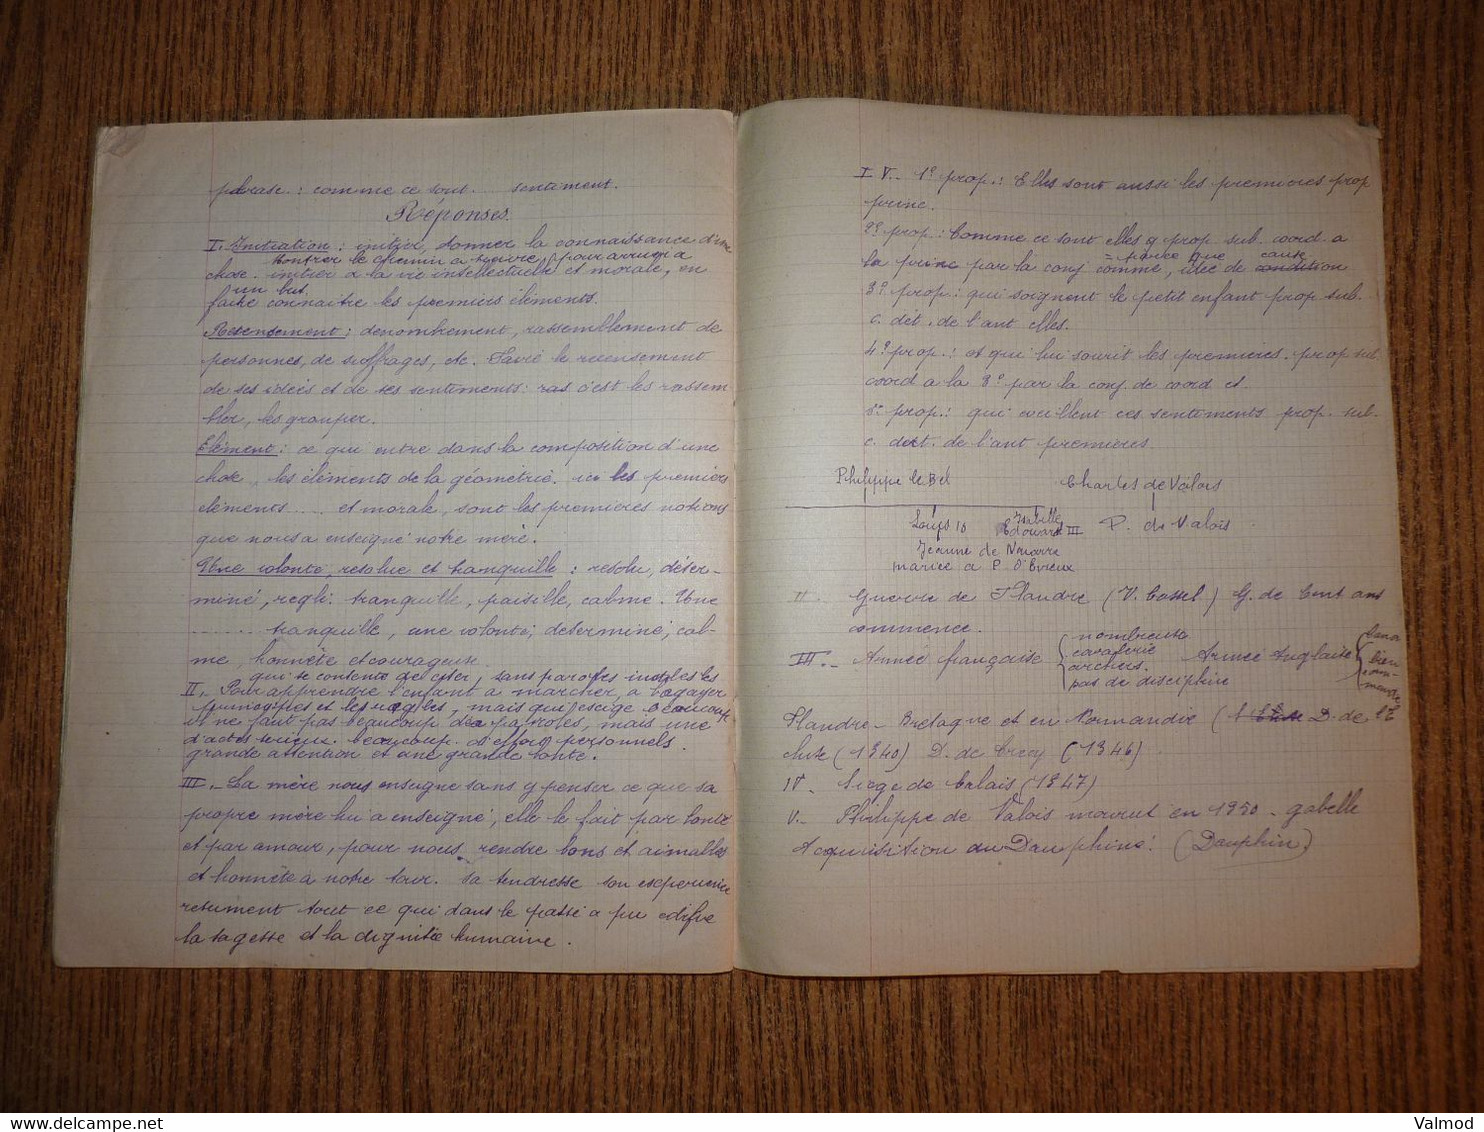 phrase : comme ce sont sentiment.
Réponses.
I. Initiation : initier, donner la connaissance d'une
Montrer le chemin a suivre, pour arriver a
chose. initier a la vie intellectuelle et morale, en
un but
faire connaitre les premiers éléments.
Resensement : denombrement, rassemblement de
personnes, de suffrages, etc. le recensement
de ses idées et de ses sentiments : c'est les rassem-
bler, les grouper.
Elément : ce qui entre dans la composition d'une
chose, les éléments de la géométrie. ici les premiers
éléments .... et morale, sont les premieres notions
que nous a enseigné notre mère.
Une volonte, resolue et tranquille : resolu, déter-
miné, regli. tranquille, paisible, calme. Une
........ tranquille, une volonté, determiné, cal-
me, honnète et courageuse.
qui se contente de citer, sans paroles inutiles les
II. Pour apprendre l'enfant a marcher, a begayer
principes et les regles, mais qui exige beaucoup
il ne faut pas beaucoup de paroles, mais une
d'actes serieux. beaucoup d'efforts personnels.
grande attention et une grande bonte.
III. - La mère nous enseigne sans y penser ce que sa
propre mère lui a enseigné, elle le fait par bonté
et par amour, pour nous rendre bons et aimables
et honnète a notre tour. Sa tendresse son experience
resument tout ce qui dans le passé a pu edifier
la sagesse et la dignitée humaine.
IV. - 1° prop. : Elles sont aussi les premieres prop
princ.
2° prop : Comme ce sont elles q prop sub. coord. a
= parce que cause
la princ par la conj comme, idée de condition
3° prop : qui soignent le petit enfant prop sub.
c. dét. de l'ant elles.
4° prop. : et qui lui sourit les premieres. prop sub
coord a la 3° par la conj. de coord et.
5° prop. : qui cueillent ces sentiments prop. sub-
c. det. de l'ant premieres.
Philippe le Bel Charles de Valois
Louis 10 Isabelle Edouard III P. de Valois
Jeanne de Navarre
mariée a P. d'Evreux
II. Guerre de Flandre (V. Cassel) G. de Cent ans
commence.
nombreuse
III. - Armée française cavalerie Armée Anglaise bien
archers.
pas de discipline
Flandre - Bretagne et en Normandie ( D. de l'E
cluse (1340) D. de Crecy (1346)
IV - Siege de Calais (1347)
V. - Philippe de Valois mourut en 1350 - gabelle
Acquisition du Dauphiné. (Dauphin)
Valmod